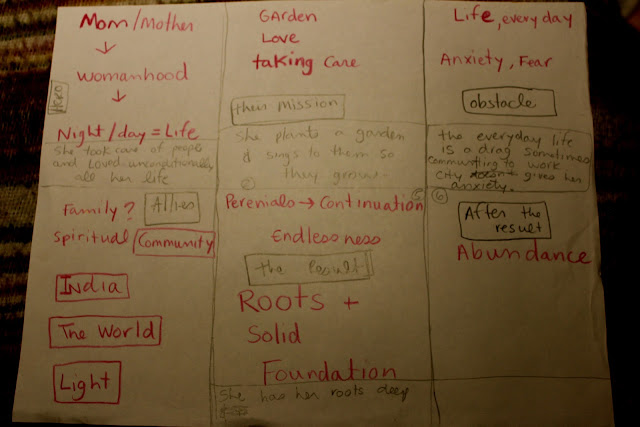 Mom/Mother
Womanhood
HERO
Night/day = Life
She took care of people
and Loved unconditionally
all her life
GARden
Love
taking Care
their Mission
She plants a garden
& sings to them so
they grow.
②
Life, everyday
Anxiety, Fear
obstacle
the everyday life
is a drag sometimes
commuting to work
city gives her
anxiety.
Family?
Allies
Spiritual
Community
India
The World
Light
Perenials → Continuation
Endlessness
the Result
Roots +
Solid
Foundation
She has her roots deep
⑥
After the
result
Abundance